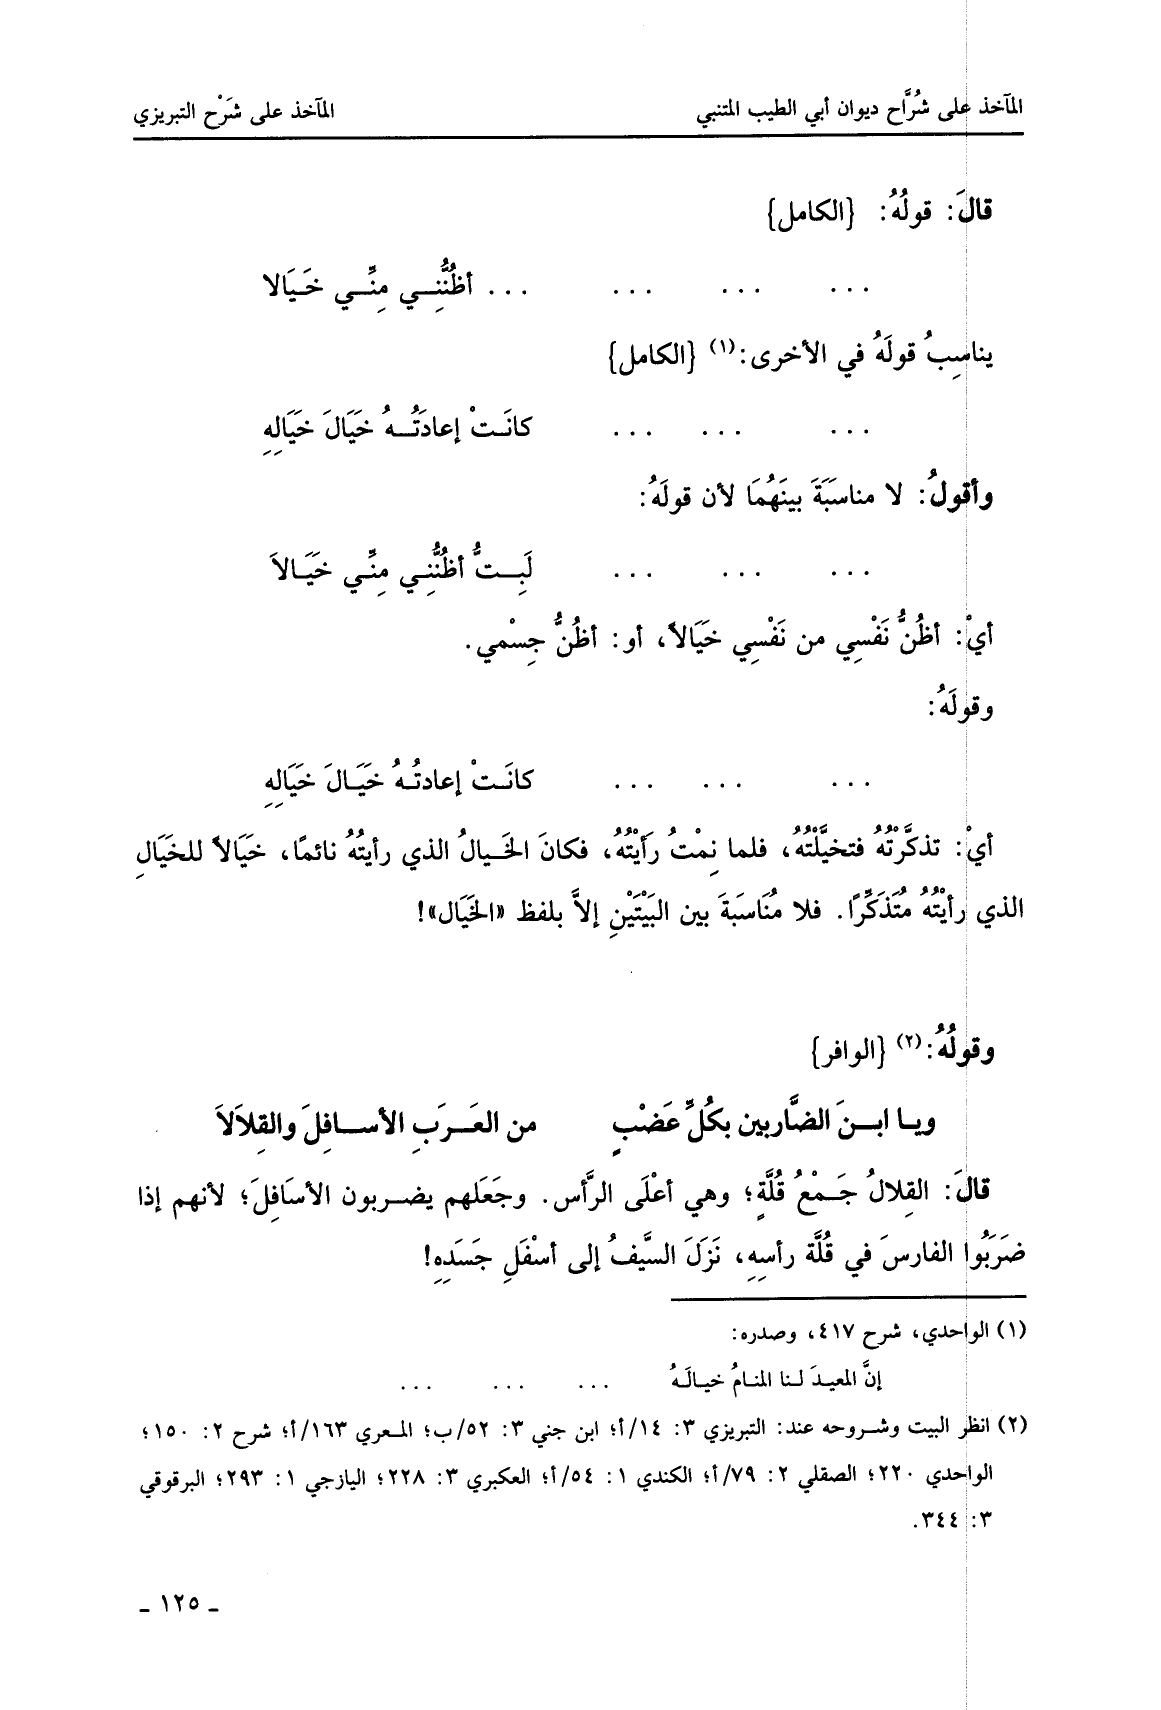 المآخذ على شُرَّاح ديوان أبي الطيب المتنبي المآخذ على شَرْح التبريزي
قالَ: قولُهُ: {الكامل}
... ... ... ... أظُنُّنِــي مِنِّــي خَـيَالا
يناسِبُ قولَهُ في الأخرى:(١) {الكامل}
... ... ... كانَـتْ إعادَتُــهُ خَيَالَ خَيَالِهِ
وأقولُ: لا مناسَبَةَ بينَهُمَا لأن قولَهُ:
... ... ... لَبِــتُّ أظُنُّنِــي مِنِّــي خَيَـالاَ
أيْ: أظُنُّ نَفْسِي من نَفْسِي خَيَالاً، أو: أظُنُّ جِسْمي.
وقولَهُ:
... ... ... كانَـتْ إعادتُـهُ خَيَـالَ خَيَالِهِ
أيْ: تذكَّرْتُهُ فتخيَّلْتُهُ، فلما نِمْتُ رَأيْتُهُ، فكانَ الخَـيالُ الذي رأيتُهُ نائمًا، خَيَالاً للخَيَالِ
الذي رأيْتُهُ مُتَذَكِّرًا. فلا مُنَاسَبَةَ بين البَيْتَيْنِ إلاَّ بلفظ «الخَيَال»!
وقولُهُ:(٢) {الوافر}
ويـا ابــنَ الضَّاربين بكُلِّ عَضْبٍ من العَــرَبِ الأســافِلَ والقِلاَلاَ
قالَ: القِلالُ جَــمْعُ قُلَّةٍ؛ وهي أعْلَى الرَّأس. وجَعَلهم يضــربون الأسَافِلَ؛ لأنهم إذا
ضَرَبُوا الفارسَ في قُلَّة رأسِهِ، نَزَلَ السَّيفُ إلى أسْفَلِ جَسَدِهِ!
(١) الواحدي، شرح ٤١٧، وصدره:
إنَّ المعيـدَ لـنا المنـامُ خيـالَـهُ ... ... ...
(٢) انظر البيت وشــروحه عند: التبريزي ٣: ١٤/أ؛ ابن جني ٣: ٥٢/ب؛ المـعري ١٦٣/أ؛ شرح ٢: ١٥٠؛
الواحدي ٢٢٠؛ الصقلي ٢: ٧٩/أ؛ الكندي ١: ٥٤/أ؛ العكبري ٣: ٢٢٨؛ اليازجي ١: ٢٩٣؛ البرقوقي
٣: ٣٤٤.
ـ ١٢٥ ـ